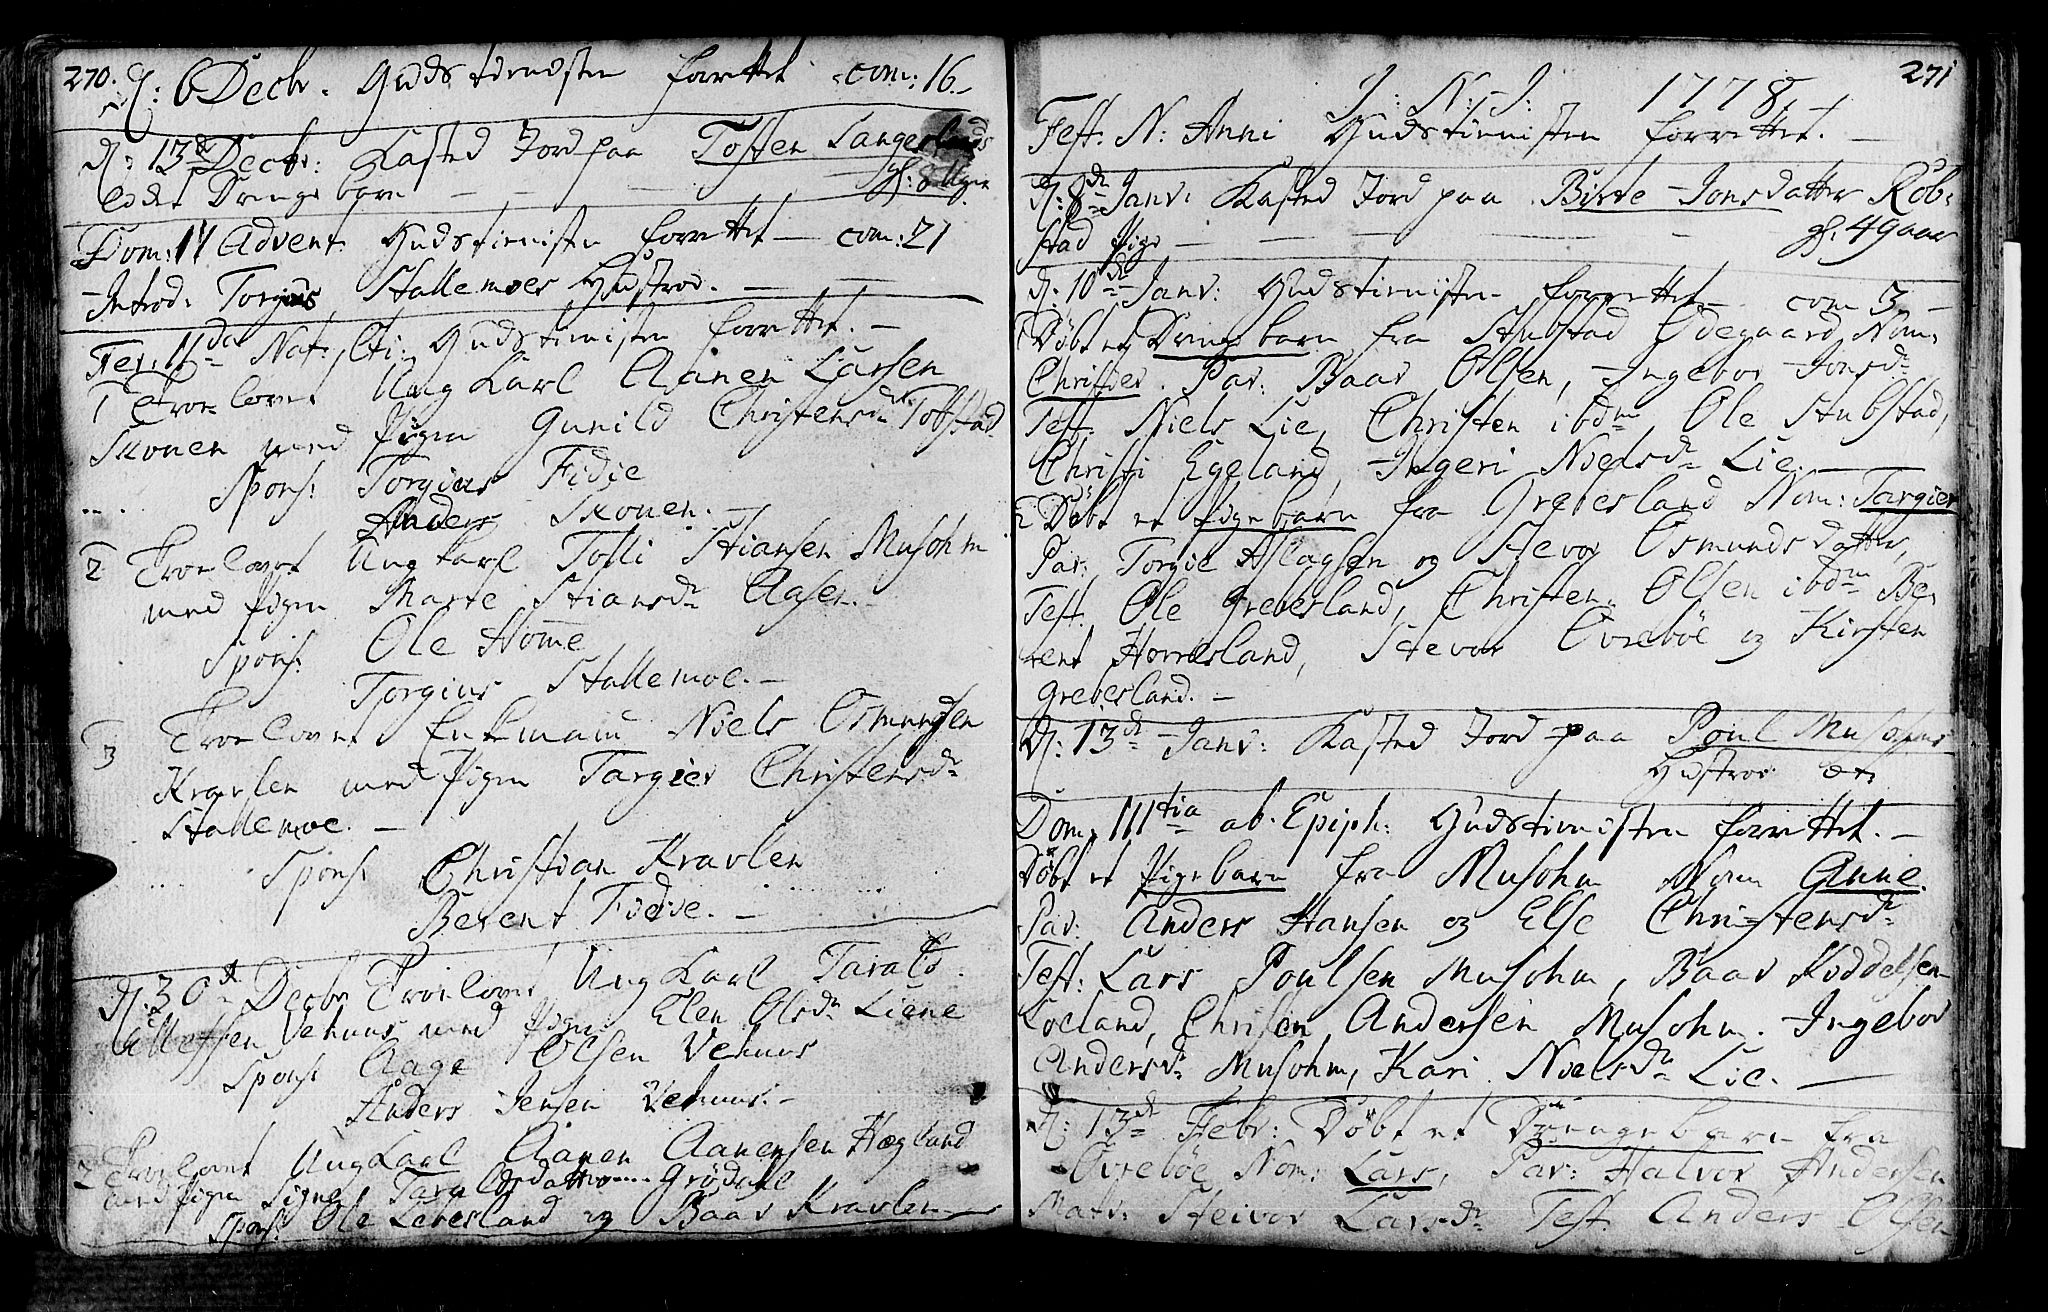 270.
d: 6 Decbr. Gudstienesten forrettet com: 16.
d: 13de Decbr: Kasted Jord paa Tosten Langerlands
Ødt Drenge barn — — — gl: 8 Uger
Dom: IV Advent Gudstienisten forrettet — com: 21
Introd: Torgius Stallemoes Hustroe. —
Fer: IIda Nat: Xti: Gudstienisten forrettet. —
1 Troelovet Ung Karl Aanen Larsen
Skouen med Pigen Gunild Christensdr Tofstad
Spons: Torgius Fidie
Anders Skouen. —
2 Troelovet Ungkarl Tolli Stiansen Musohm
med Pigen Marte Stiansdr Aasen.
Spons: Ole Homme
Torgius Stallemoe. —
3 Troelovet Enkemand Niels Osmundsen
Kravlen med Pigen Targier Christensdr
Stallemoe. —
Spons: Christian Kravlen
Berent Fidie. —
d: 30te Decbr Troelovet Ung Karl Tarald
Ollefsen Vehuus med Pigen Elen Olsdr Liene
Spons: Aage Olsen Vehuus
Anders Jensen Vehuus. —
2 Troelovet UngKarl Aanen Aanensen Hægland
med Pigen Signe Taraldsdatter Grødahl
Spons: Ole Leversland og Baar Kravlen —
271
J: N: J: 1778. —
Fest: N: Anni Gudstienisten forrettet. —
d: 8de Janv: Kasted Jord paa Birte Jonsdatter Rob-
stad Pige — — — gl: 49 aar
d: 10de Janv: Gudstienisten forrettet — com 3. —
1 Døbt et Drengebarn fra Stubstad Ødegaard Nom:
Christer. Par: Baar Olsen, Ingebor Jonsdr
Test: Niels Lie, Christen ibdm Ole Stubstad,
Christi Egeland, Ingeri Nielsdr Lie. —
2 Døbt et Pigebarn fra Greversland Nom: Targier
Par: Torgie Aslagsen og Stevor Osmundsdatter,
Test: Ole Greversland, Christen Olsen ibdm Be-
rent Horrisland, Stevor Ovrebøe og Kirsten
Greversland. —
d: 13de Janv: Kasted Jord paa Poul Musohms
Hustroe æt:
Dom: IIItia ab. Epiph: Gudstienisten forrettet. —
Døbt et Pigebarn fra Musohm Nom Anne.
Par: Anders Hansen og Else Christensdr
Test: Lars Poulsen Musohm, Baar Kiddelsen
Loeland, Christen Andersen Musohm. Ingebor
Andersdr Musohm, Kari Nielsdr Lie. —
d: 13de Febr: Døbt et Drengebarn fra
Ovrebøe Nom: Lars, Par: Halvor Andersen
Matr: Steivor Larsdr Test: Anders Olsen